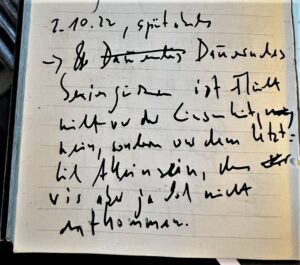 2.10.22, spätabends
→ Dauerndes Dauerndes
ist Flucht
nicht vor der Einsamkeit,
nein, sondern vor dem letzt-
lich Alleinsein, dem
wir aber ja doch nicht
entkommen.